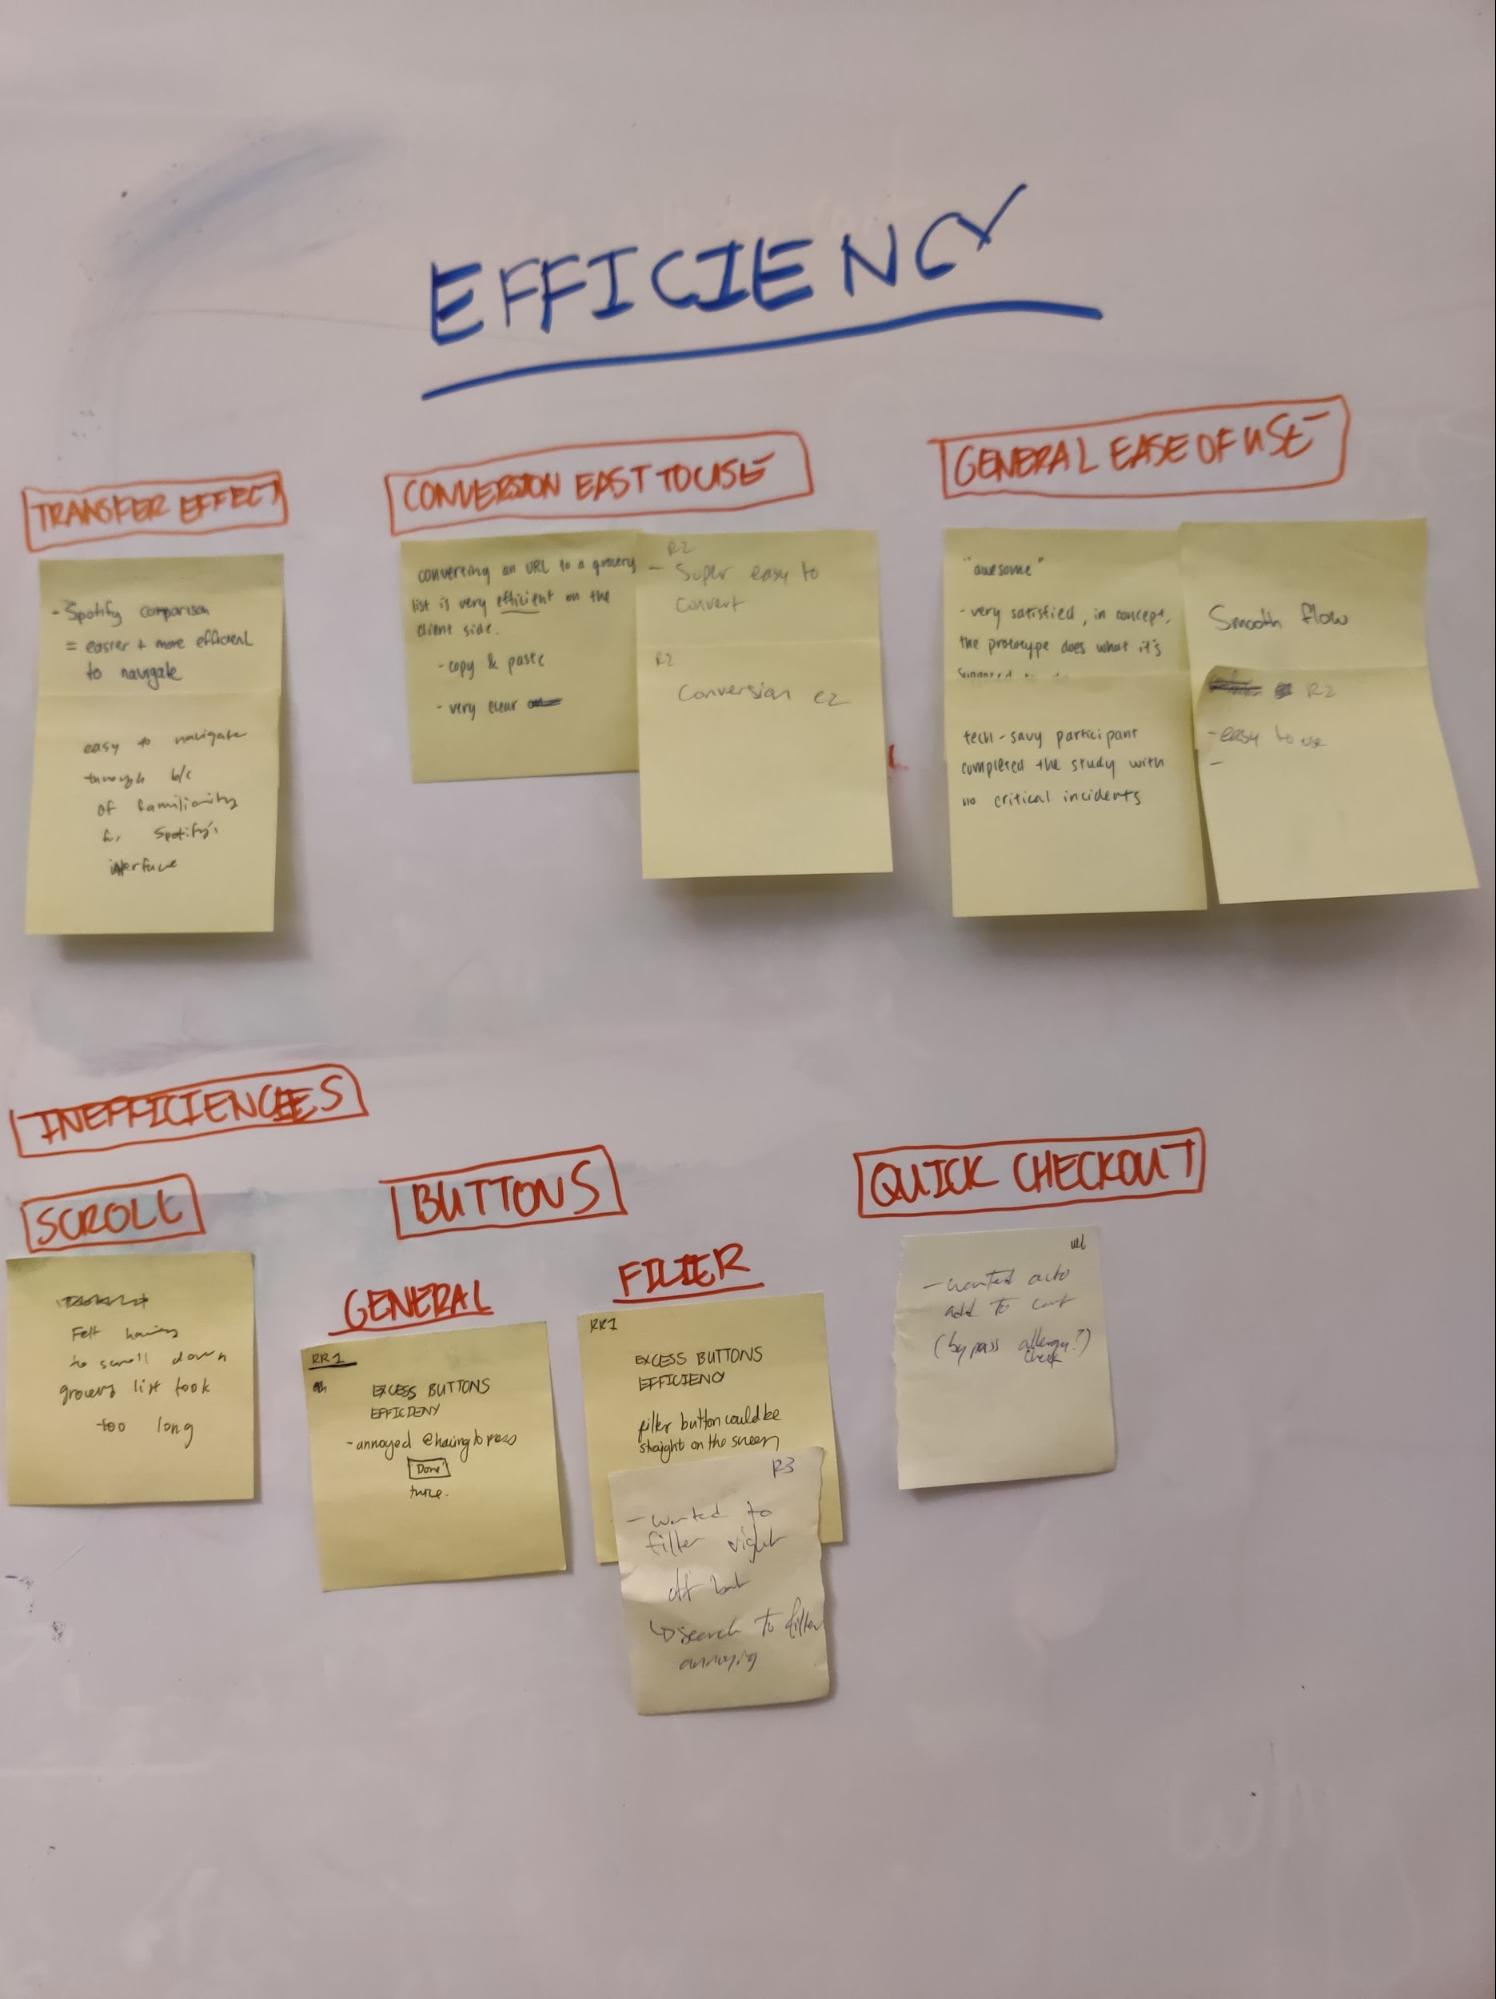 EFFICIENCY
TRANSFER EFFECT
- Spotify comparison
= easier + more efficient
to navigate
easy to navigate
through b/c
of familiarity
Spotify's
interface
CONVERSION EAST TO USE
converting an URL to a grocery
list is very efficient on the
client side.
- copy & paste
- very clear
R2
- Super easy to
convert
R2
Conversion ez
GENERAL EASE OF USE
"awesome"
- very satisfied, in concept,
the prototype does what it's
supposed to do
tech-savy participant
completed the study with
no critical incidents
Smooth flow
R2
- easy to use
-
INEFFICIENCIES
SCROLL
Felt having
to scroll down
grocery list took
too long
BUTTONS
GENERAL
RR1
EXCESS BUTTONS
EFFICIENY
- annoyed @ having to press
Done
twice.
FILTER
RR1
EXCESS BUTTONS
EFFICIENCY
filter button could be
straight on the screen
R3
- wanted to
filter right
off bat
↳ search to filter
annoying
QUICK CHECKOUT
- wanted auto
add to cart
(bypass allergy?)
check